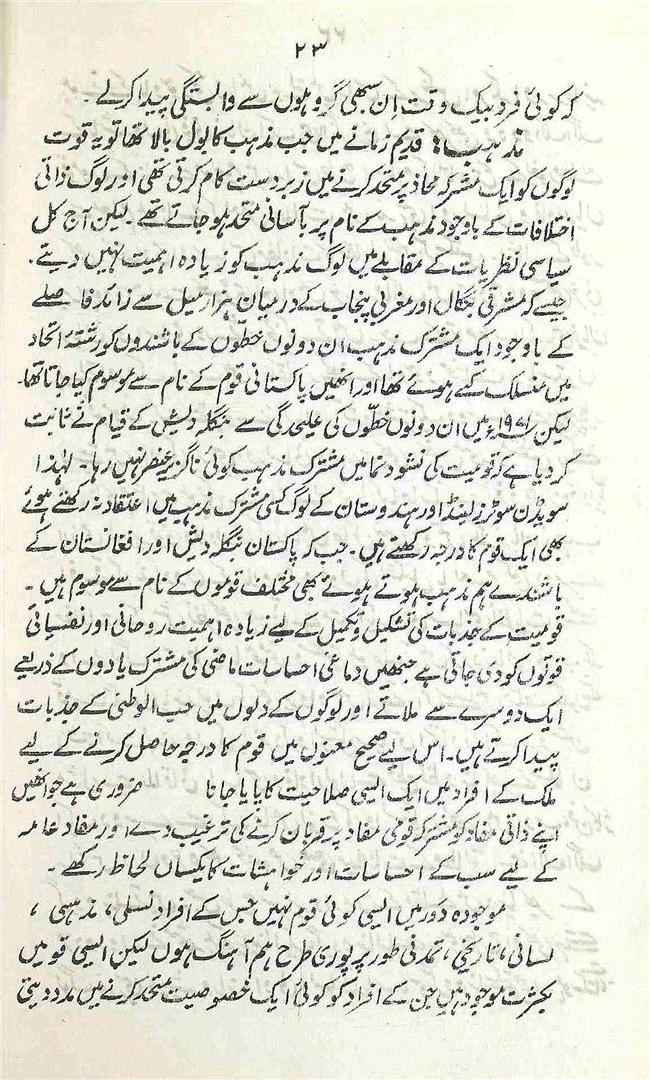 ۲۳
کہ کوئی فرد بیک وقت اِن سبھی گروہلوں سے وابستگی پیدا کرلے ۔
مذہب: قدیم زمانے میں جب مذہب کا بول بالا تھا تو یہ قوت
لوگوں کو ایک مشترکہ محاذ پر متحد کرنے میں زبردست کام کرتی تھی اور لوگ ذاتی
اختلافات کے باوجود مذہب کے نام پر بآسانی متحد ہوجاتے تھے ۔ لیکن آج کل
سیاسی نظریات کے مقابلے میں لوگ مذہب کو زیادہ اہمیت نہیں دیتے ۔
جیسے کہ مشرقی بنگال اور مغربی پنجاب کے درمیان ہزار میل سے زائد فاصلے
کے باوجود ایک مشترک مذہب ان دونوں خطّوں کے باشندوں کو رشتۂ اتحاد
میں منسلک کیے ہوئے تھا اور انھیں پاکستانی قوم کے نام سے موسوم کیا جاتا تھا۔
لیکن ۱۹۷۱ء میں ان دونوں خطّوں کی علیحدگی سے بنگلہ دیش کے قیام نے ثابت
کردیا ہے کہ قومیت کی نشوونما میں مشترک مذہب کوئی ناگزیر عنصر نہیں رہا ۔ لہٰذا
سویڈن سوئزرلینڈ اور ہندوستان کے لوگ کسی مشترک مذہب میں اعتقاد نہ رکھتے ہوئے
بھی ایک قوم کا درجہ رکھتے ہیں ۔ جب کہ پاکستان بنگلہ دیش اور افغانستان کے
باشندے ہم مذہب ہوتے ہوئے بھی مختلف قوموں کے نام سے موسوم ہیں ۔
قومیت کے جذبات کی تشکیل و تکمیل کے لیے زیادہ اہمیت روحانی اور نفسیاتی
قوتوں کو دی جاتی ہے جنھیں دماغی احساسات ماضی کی مشترک یادوں کے ذریعے
ایک دوسرے سے ملاتے اور لوگوں کے دلوں میں حب الوطنی کے جذبات
پیدا کرتے ہیں ۔ اس لیے صحیح معنوں میں قوم کا درجہ حاصل کرنے کے لیے
ملک کے افراد میں ایک ایسی صلاحیت کا پایا جانا ضروری ہے جو انھیں
اپنے ذاتی مفاد کو مشترکہ قومی مفاد پر قربان کرنے کی ترغیب دے اور مفاد عامہ
کے لیے سب کے احساسات اور خواہشات کا یکساں لحاظ رکھے ۔
موجودہ دَور میں ایسی کوئی قوم نہیں جس کے افراد نسلی ، مذہبی ،
لسانی ، تاریخی ، تمدنی طور پر پوری طرح ہم آہنگ ہوں لیکن ایسی قومیں
بکثرت موجود ہیں جن کے افراد کو کوئی ایک خصوصیت متحد کرنے میں مدد دیتی